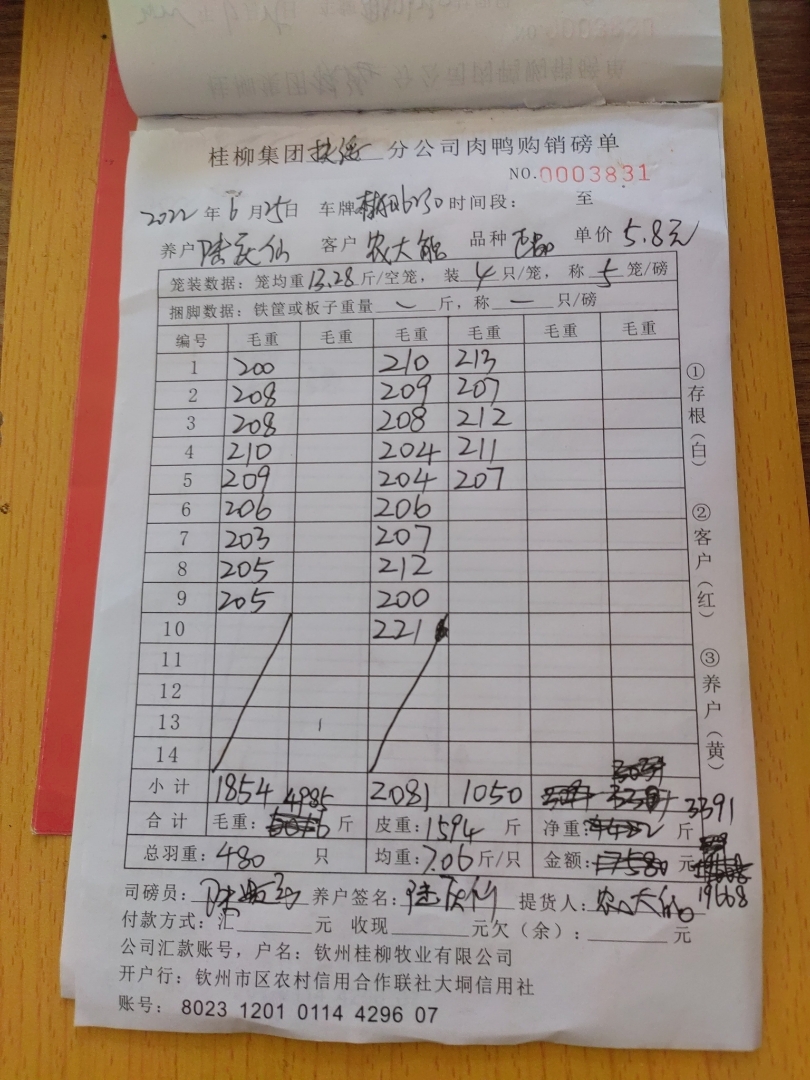 桂柳集团 分公司肉鸭购销磅单
NO.0003831
2022年6月25日 车牌 6230 时间段： 至
养户 陆庆仙 客户 农大能 品种 单价 5.8元
笼装数据：笼均重13.28斤/空笼，装4只/笼，称5笼/磅
捆脚数据：铁筐或板子重量 — 斤，称 — 只/磅
编号 毛重 毛重 毛重 毛重 毛重 毛重
1 200 210 213
2 208 209 207
3 208 208 212
4 210 204 211
5 209 204 207
6 206 206
7 203 207
8 205 212
9 205 200
10 221
11
12
13
14
小计 1854 2081 1050
合计 毛重： 4985 斤 皮重：1594 斤 净重： 3391 斤
总羽重：480 只 均重：7.06斤/只 金额： 元
19668
司磅员： 养户签名：陆庆仙 提货人：农大能
付款方式：汇 元 收现 元欠（余）： 元
公司汇款账号，户名：钦州桂柳牧业有限公司
开户行：钦州市区农村信用合作联社大垌信用社
账号：8023 1201 0114 4296 07
①存根（白）
②客户（红）
③养户（黄）